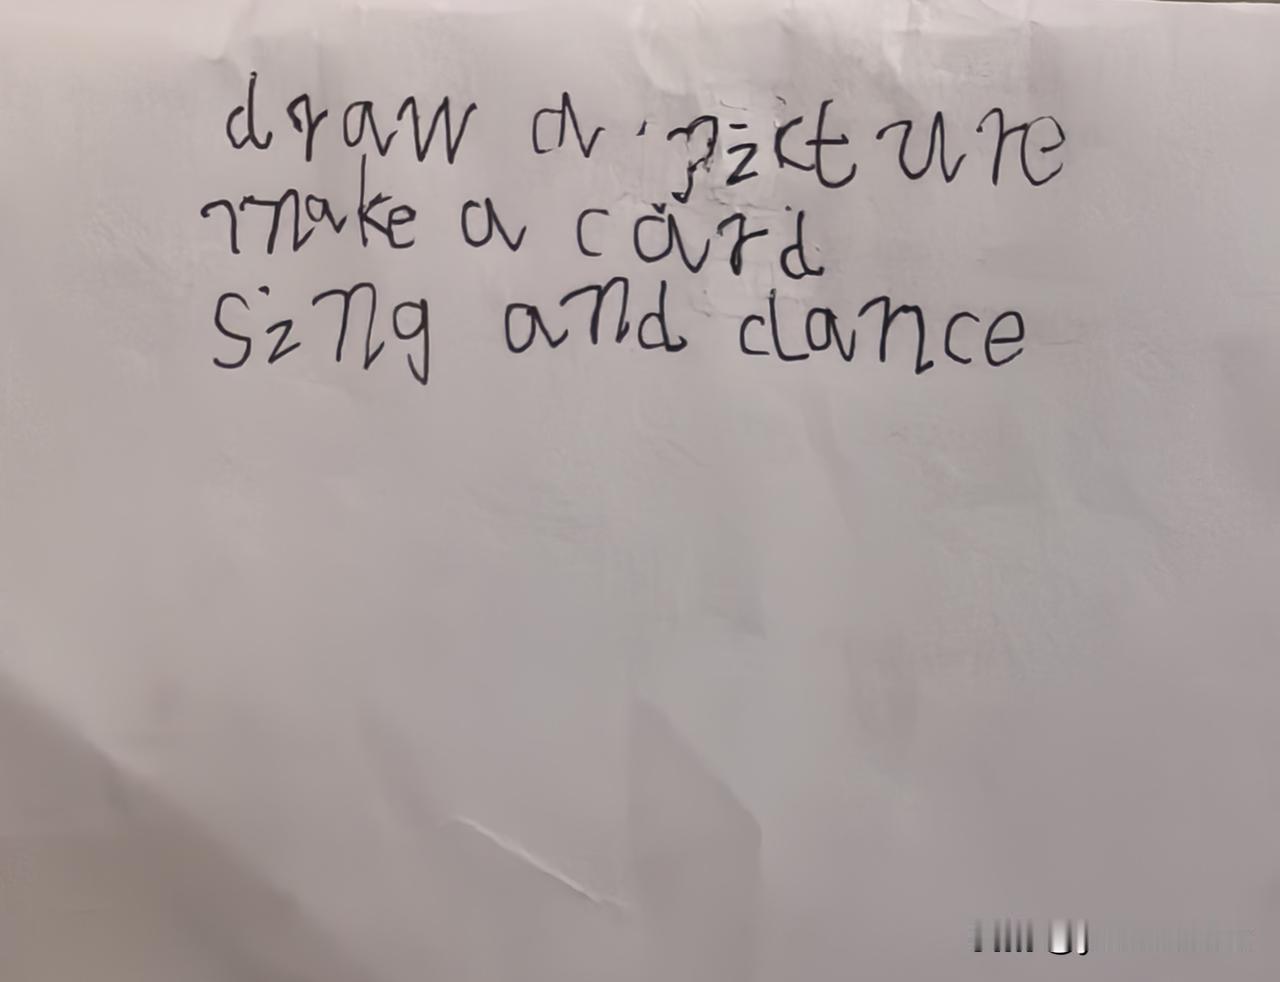 draw a picture
make a card
sing and dance